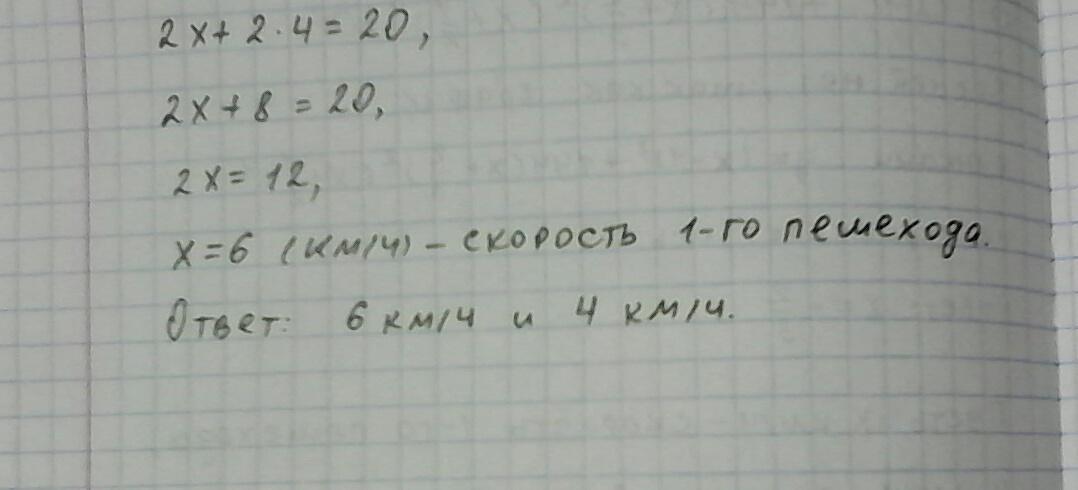 2x + 2 · 4 = 20,
2x + 8 = 20,
2x = 12,
x = 6 (км/ч) – скорость 1-го пешехода.
Ответ: 6 км/ч и 4 км/ч.